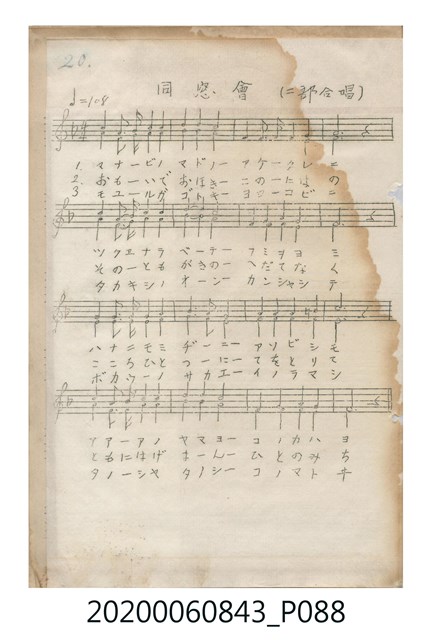 20.
同窓會 (二部合唱)
♩=108
1. マナービノ マドノー アケークレニ
2. おもーいで おほきー このーたはの
3 モユールガ ゴトキー ヨロークコビノ
ツクエナラ ベーテー フミヲヨ ミ
そのーとも がきのー へだてな く
タカキシノ オーンー カンシャシ テ
ハナニモミ ヂーニー アソビシモ
こころひと つーにー てをとりて
ボカウーノ サカエー イノラマシ
アアーアノ ヤマヨー コノカハ ヨ
ともにはげ まーんー ひとのみ ち
タノーシヤ タノシー コノマト ヰ
20200060843_P088